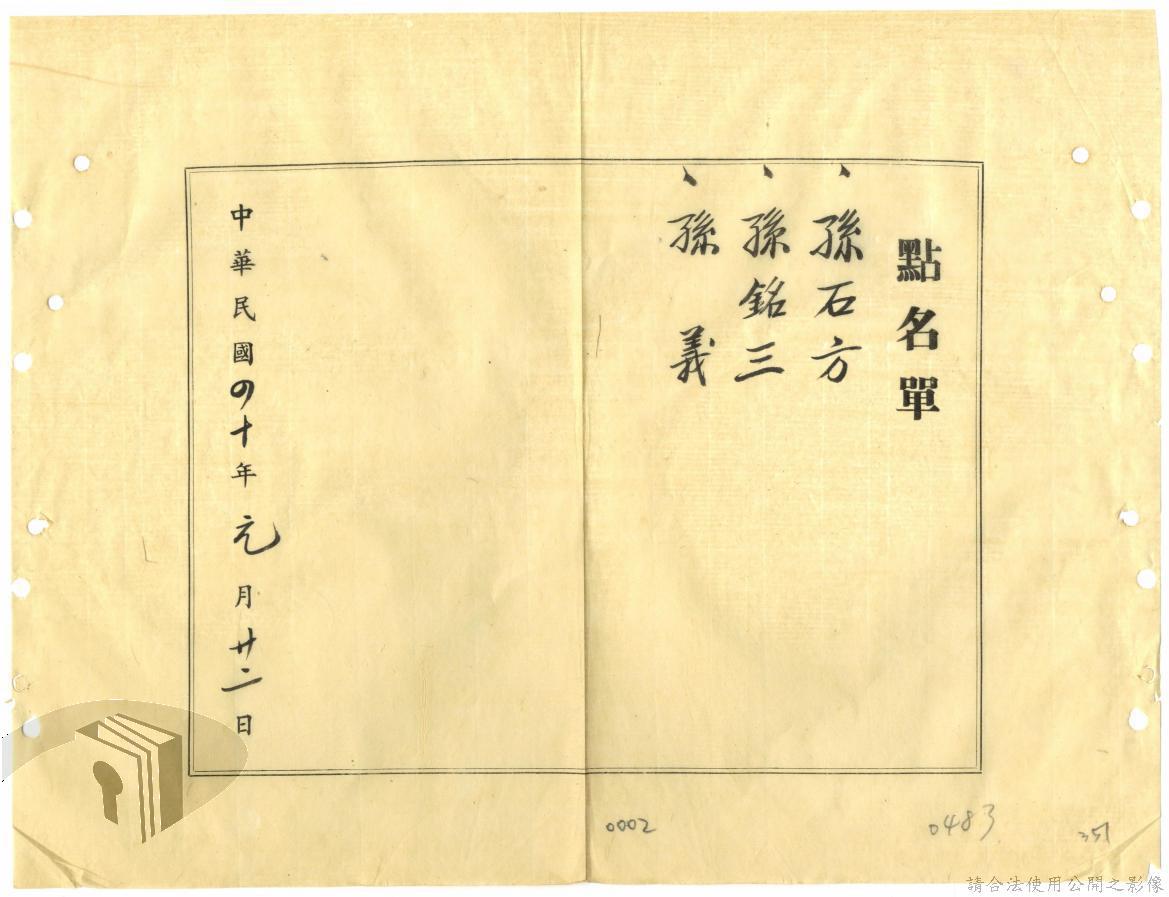 點名單
孫石方
孫銘三
孫義
中華民國四十年元月廿二日
0002
0483
351
請合法使用公開之影像